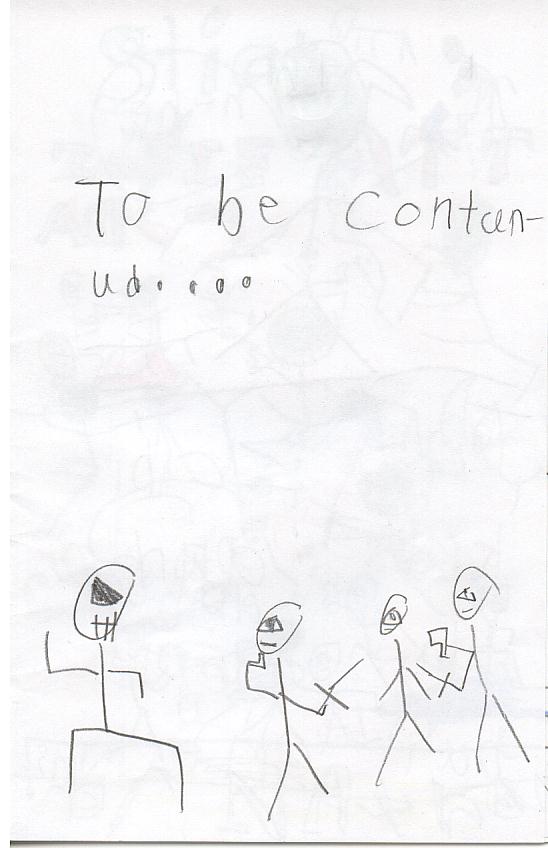 To be contun-
ud.....